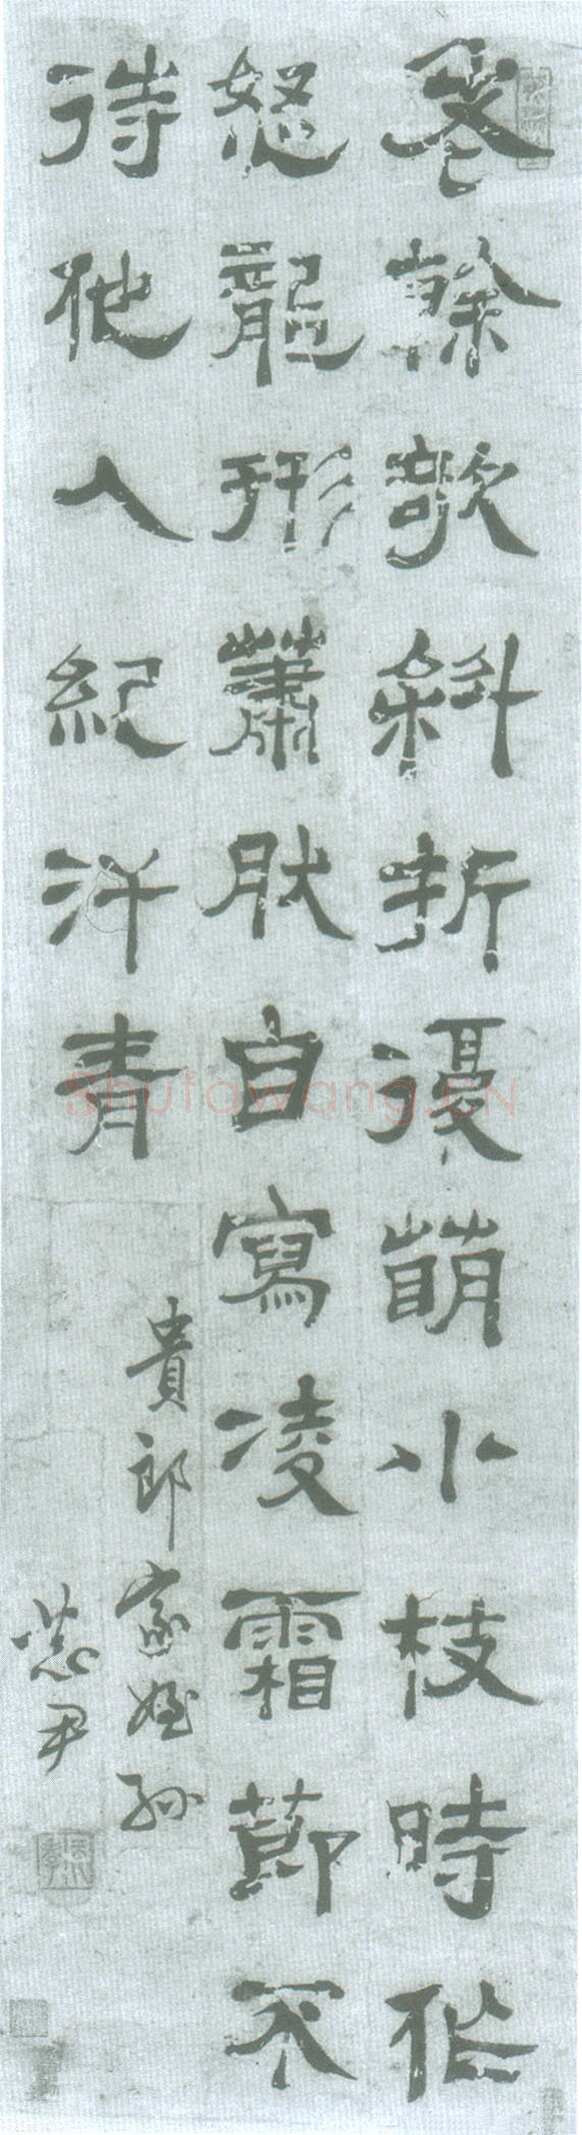 老榦欹斜折復萌小枝時作
怒龍形蕭肰自寫凌霜節不
待他人紀汗青
貴郎家姪孫
尹
Shufawang.CN